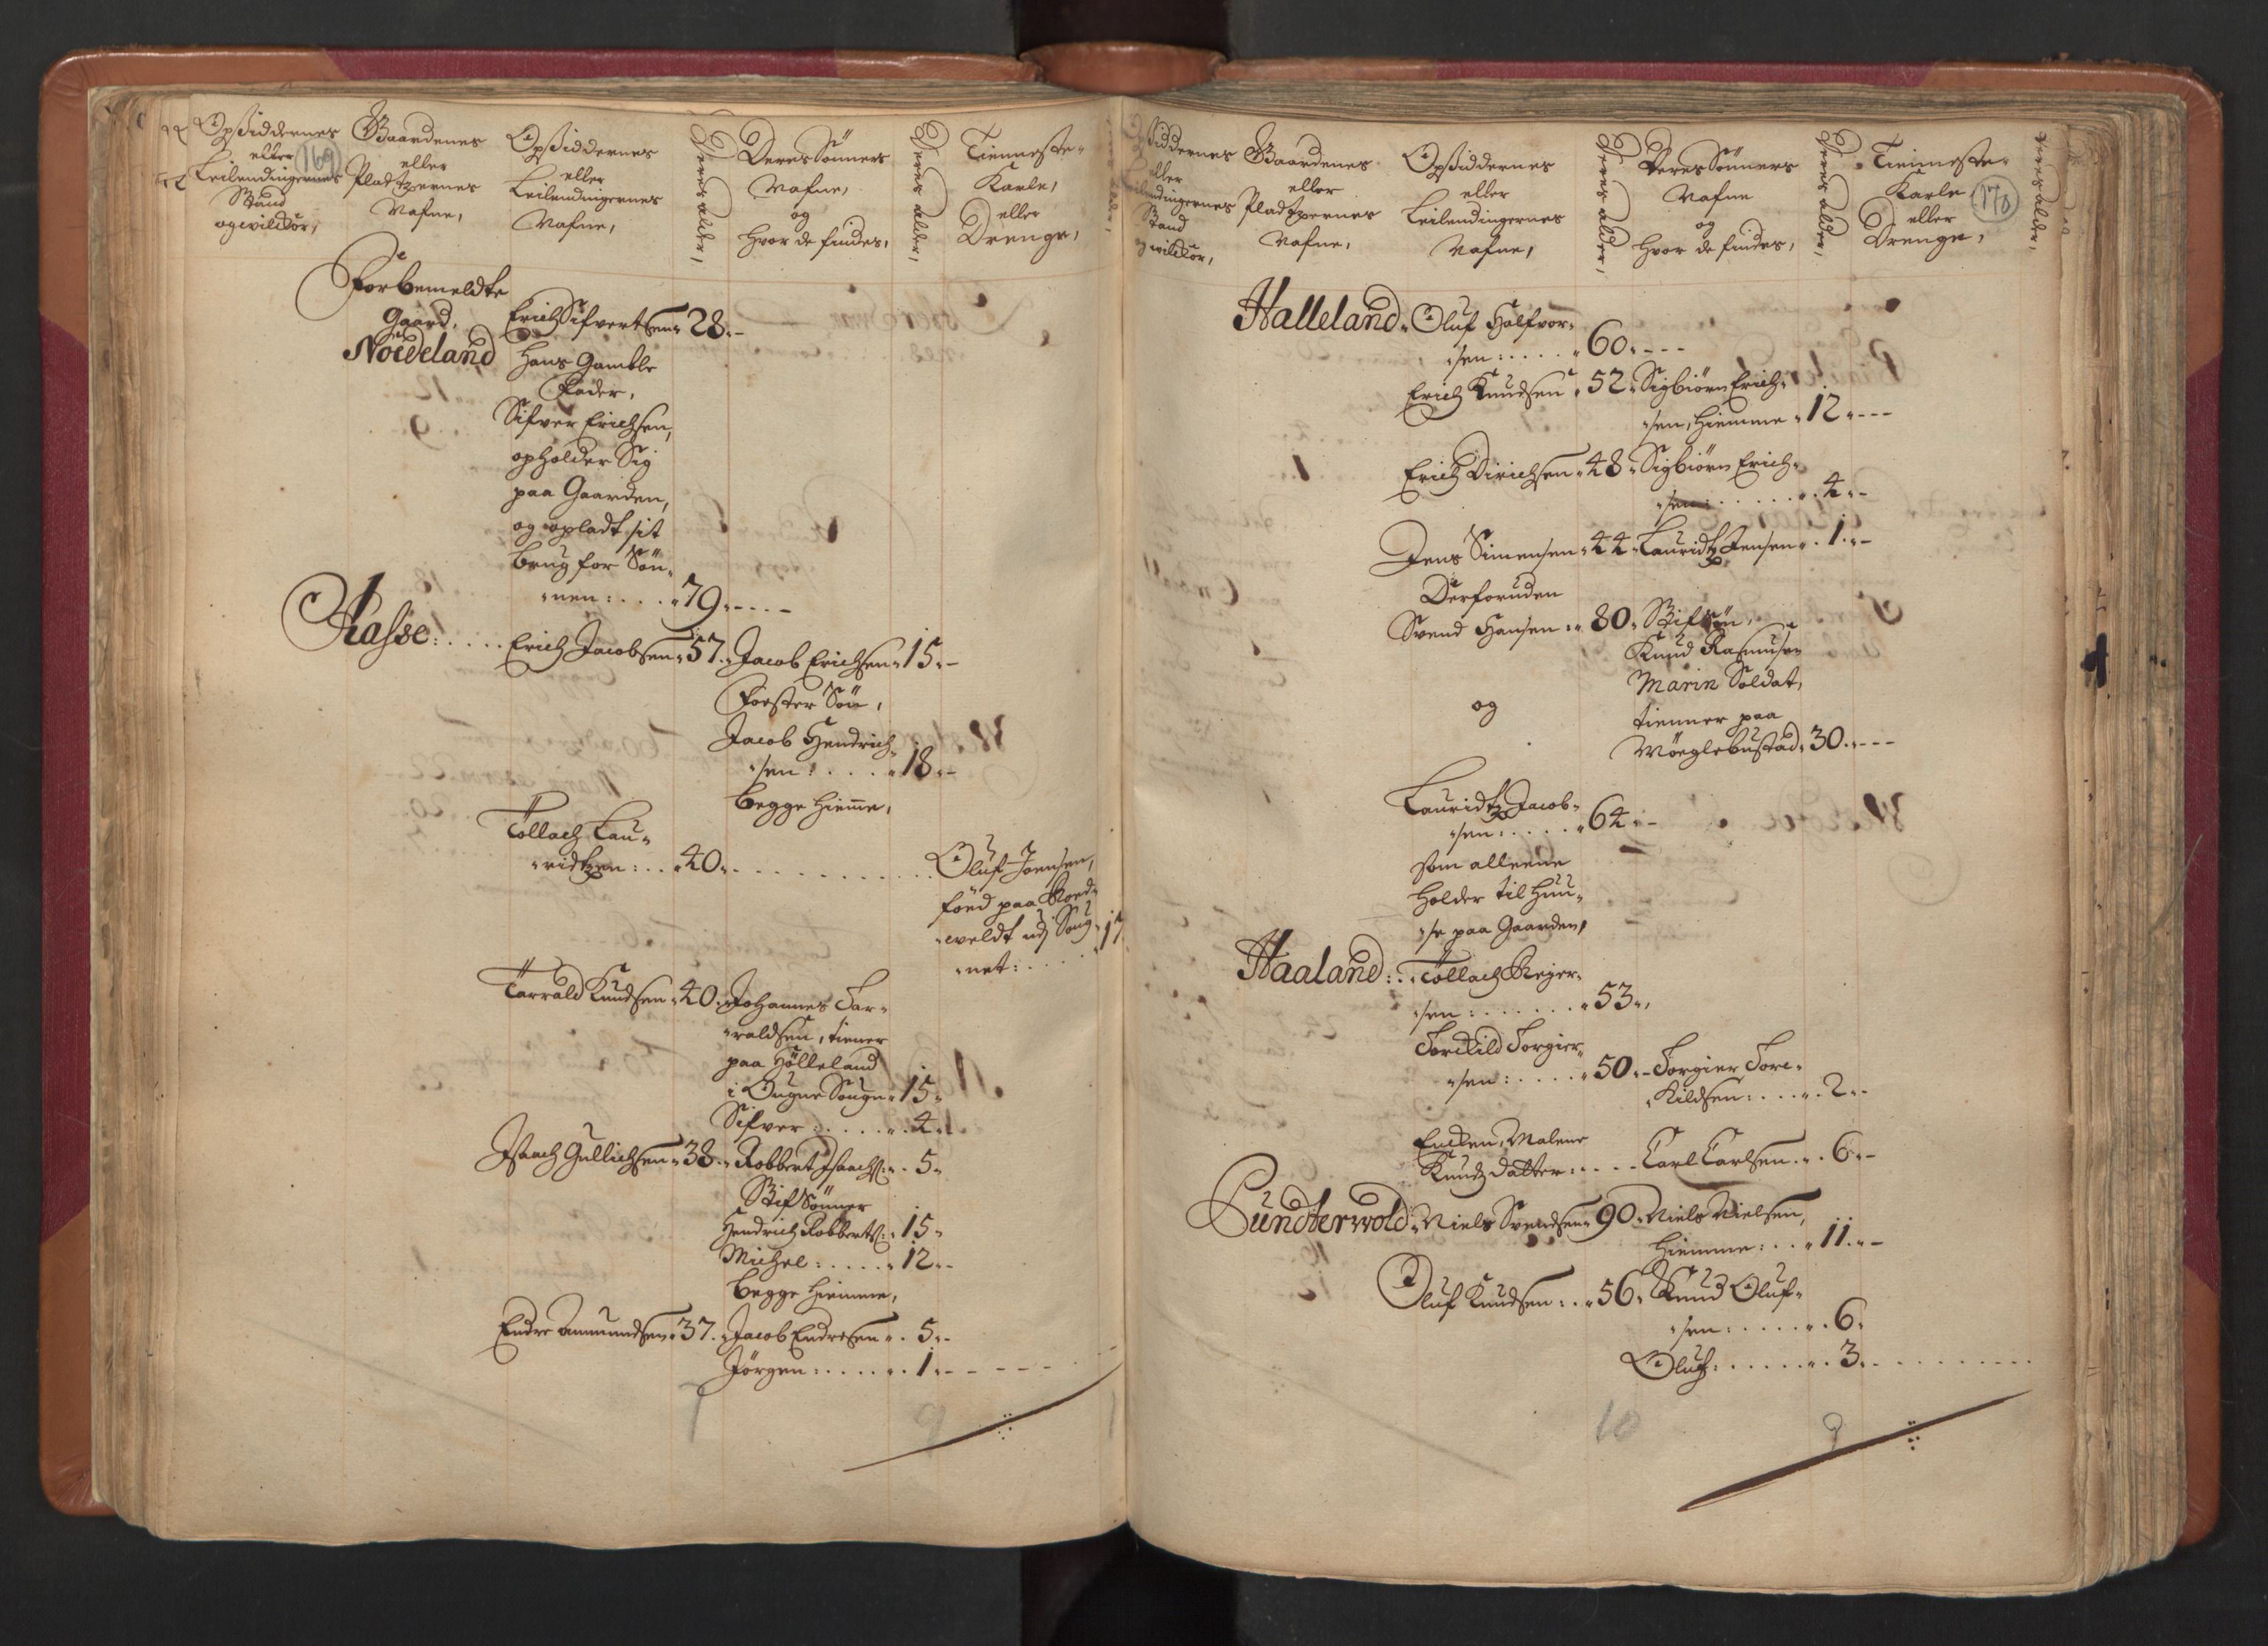 Opsiddernes
eller
Leilendingernes
Stand
og vilckor,
169
Gaardenes
eller
Pladtzernes
Nafne,
Opsiddernes
eller
Leilendingernes
Nafne,
Deres alder,
Deres Sönners
Nafne,
og
hvor de findes,
Deres alder,
Tienneste-
Karle,
eller
Drenge,
Forbemeldte
Gaard,
Nordeland
Erich Sifvertsen 28.
Hans Gamble
Fader,
Sifver Erichsen,
opholder Sig
paa Gaarden,
og opladt sit
brug for Sön-
nen: . . . . 79.
Erich Jacobsen 57. Jacob Erichsen 15.
Foster Sön,
Jacob Hendrich-
sen: . . . . 18.
begge hiemme,
Tollach Lau-
ridtzen: . . 40. . . . . . . . . . . . Oluf Joensen,
föed paa
net: . . . . 17
Tarrald Knudsen 40. Johannes Tar-
raldsen, tiener
paa Hölleland
i Ougne Sougn 15.
Sifver: . . . . 4.
Isaach Gullichsen 38. Robbert Isaachs: 5.
Stif Sönner
Hendrich Robberts: 15.
Michel: . . . . . 12.
begge hiemme,
Endre Ammundsen 37. Jacob Endresen . . 5.
Jörgen: . . . . . . 1.
7 9 1
Opsiddernes
eller
Leilendingernes
Stand
og vilckor,
Gaardenes
eller
Pladtzernes
Nafne,
Opsiddernes
eller
Leilendingernes
Nafne,
Deres alder,
Deres Sönners
Nafne
og
hvor de findes,
Deres alder,
Tienneste-
Karle
eller
Drenge,
170
Deres alder,
Halleland. Oluf Halfvor-
sen: . . . . 60.
Erich Knudsen 52. Sigbiörn Erich-
sen, hiemme 12.
Erich Dirichsen 48. Sigbiörn Erich-
sen: . . . . . . 4.
Jens Simensen 44. Lauridtz Jensen . 1.
Derforuden
Svend Hansen: 80. Stif Sön,
Knud Rasmusen
Marin Soldat,
og
tienner paa
30.
Lauridtz Jacob-
sen: . . . . . 64.
som alleene
holder til huu-
se paa Gaarden,
Haaland: . . Tollach Rejer-
sen: . . . . . . 53.
Torckild Torgier-
sen: . . . . 50. Torgier Torc-
Kildsen: . . . . 2.
Encken, Malene
Knudz datter: . . . . Carl Carlsen . . 6.
Niels Svendsen 90. Niels Nielsen,
hiemme: . . 11.
Oluf Knudsen: . . 56. Knud Oluf-
sen: . . . . . . 6.
Oluf: . . . . . . . 3.
10 9